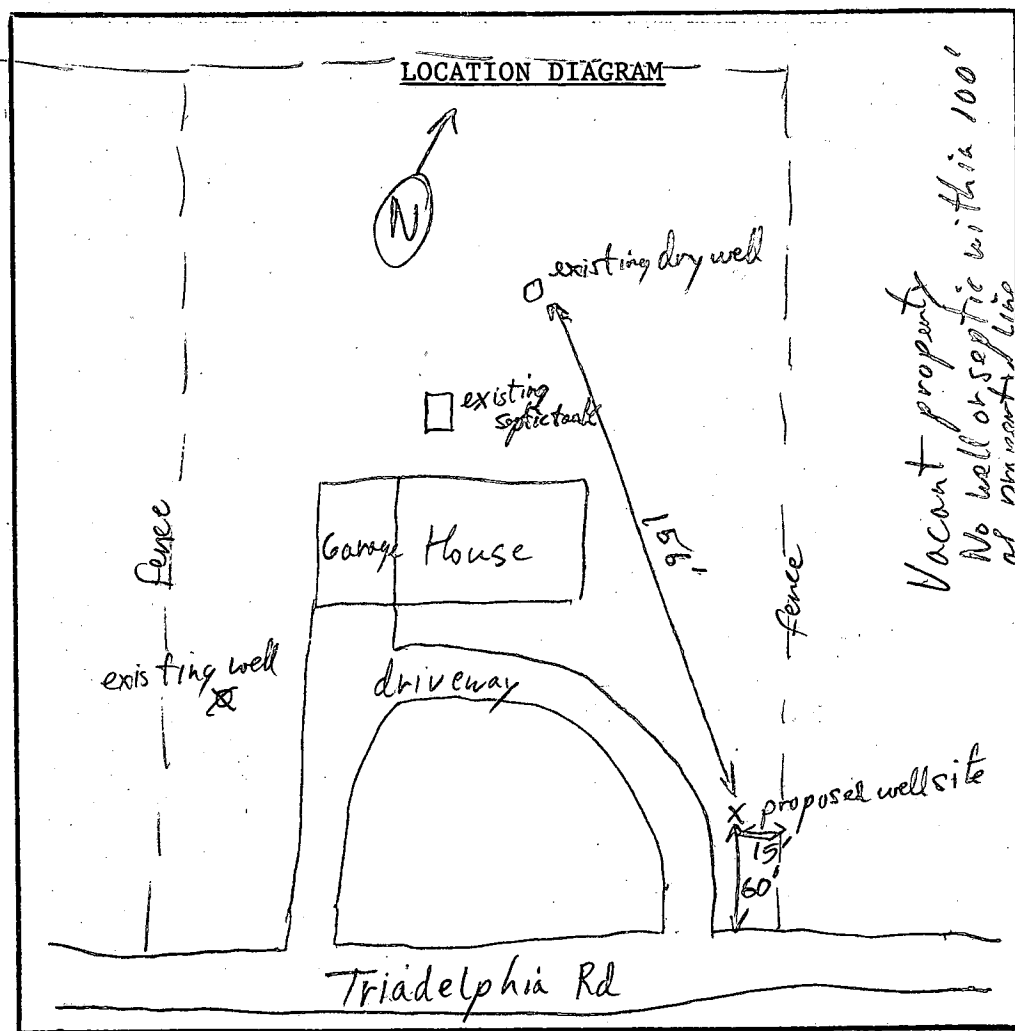 LOCATION DIAGRAM
N
existing dry well
existing
septic tank
Garage House
fence
fence
existing well
driveway
x proposed well site
15'
60'
Triadelphia Rd
Vacant property
No well or septic within 100'
of line